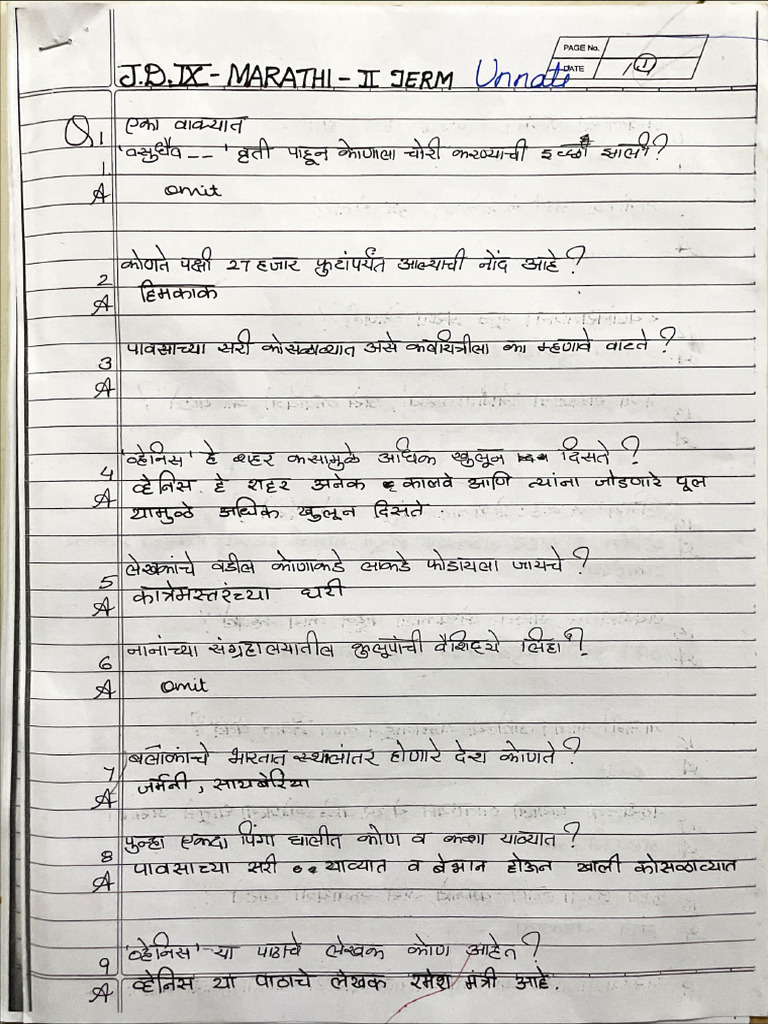 PAGE No. 1
DATE
J.D.IX - MARATHI - II TERM Unnati
Q1 एका वाक्यात
1 'वसुधैव -- ' वृत्ती पाहून कोणाला चोरी करण्याची इच्छा झाली?
A omit
2 कोणते पक्षी 27 हजार फुटांपर्यंत आल्याची नोंद आहे?
A हिमकाक
3 पावसाच्या सरी कोसळाव्यात असे कवयित्रीला का म्हणावे वाटते?
A
4 'व्हेनिस' हे शहर कसामुळे अधिक खुलून दिसते?
A व्हेनिस हे शहर अनेक कालवे आणि त्यांना जोडणारे पूल
यामुळे अधिक खुलून दिसते.
5 लेखकांचे वडील कोणाकडे लाकडे फोडायला जायचे?
A कात्रेमास्तरंच्या घरी
6 नानांच्या संग्रहालयातील कुलूपांची वैशिष्ट्ये लिहा?
A omit
7 बलाकांचे भारतात स्थालांतर होणारे देश कोणते?
A जर्मनी, सायबेरिया
8 पुन्हा एकदा पिंगा घालीत कोण व कशा याव्यात?
A पावसाच्या सरी याव्यात व बेभान होऊन खाली कोसळाव्यात
9 'व्हेनिस' या पाठाचे लेखक कोण आहेत?
A व्हेनिस या पाठाचे लेखक रमेश मंत्री आहे.